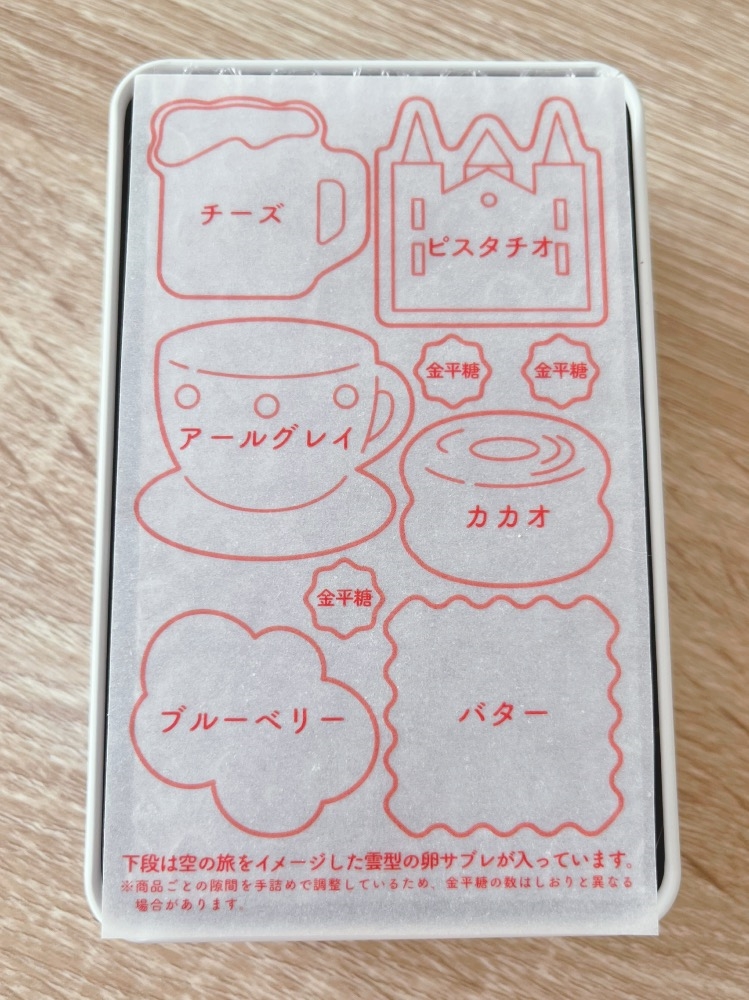 チーズ
ピスタチオ
金平糖
金平糖
アールグレイ
カカオ
金平糖
ブルーベリー
バター
下段は空の旅をイメージした雲型の卵サブレが入っています。
※商品ごとの隙間を手詰めで調整しているため、金平糖の数はしおりと異なる
場合があります。